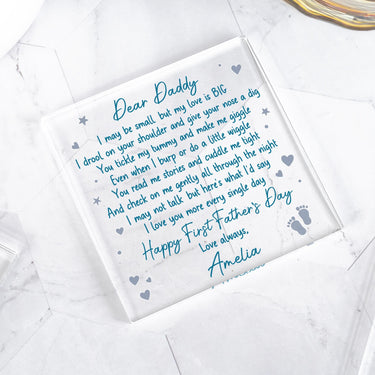 Dear Daddy
I may be small, but my love is BIG
I drool on your shoulder and give your nose a dig
You tickle my tummy and make me giggle
Even when I burp or do a little wiggle
You read me stories and cuddle me tight
And check on me gently all through the night
I may not talk but here's what I'd say
I love you more every single day
Happy First Father's Day
Love always,
Amelia